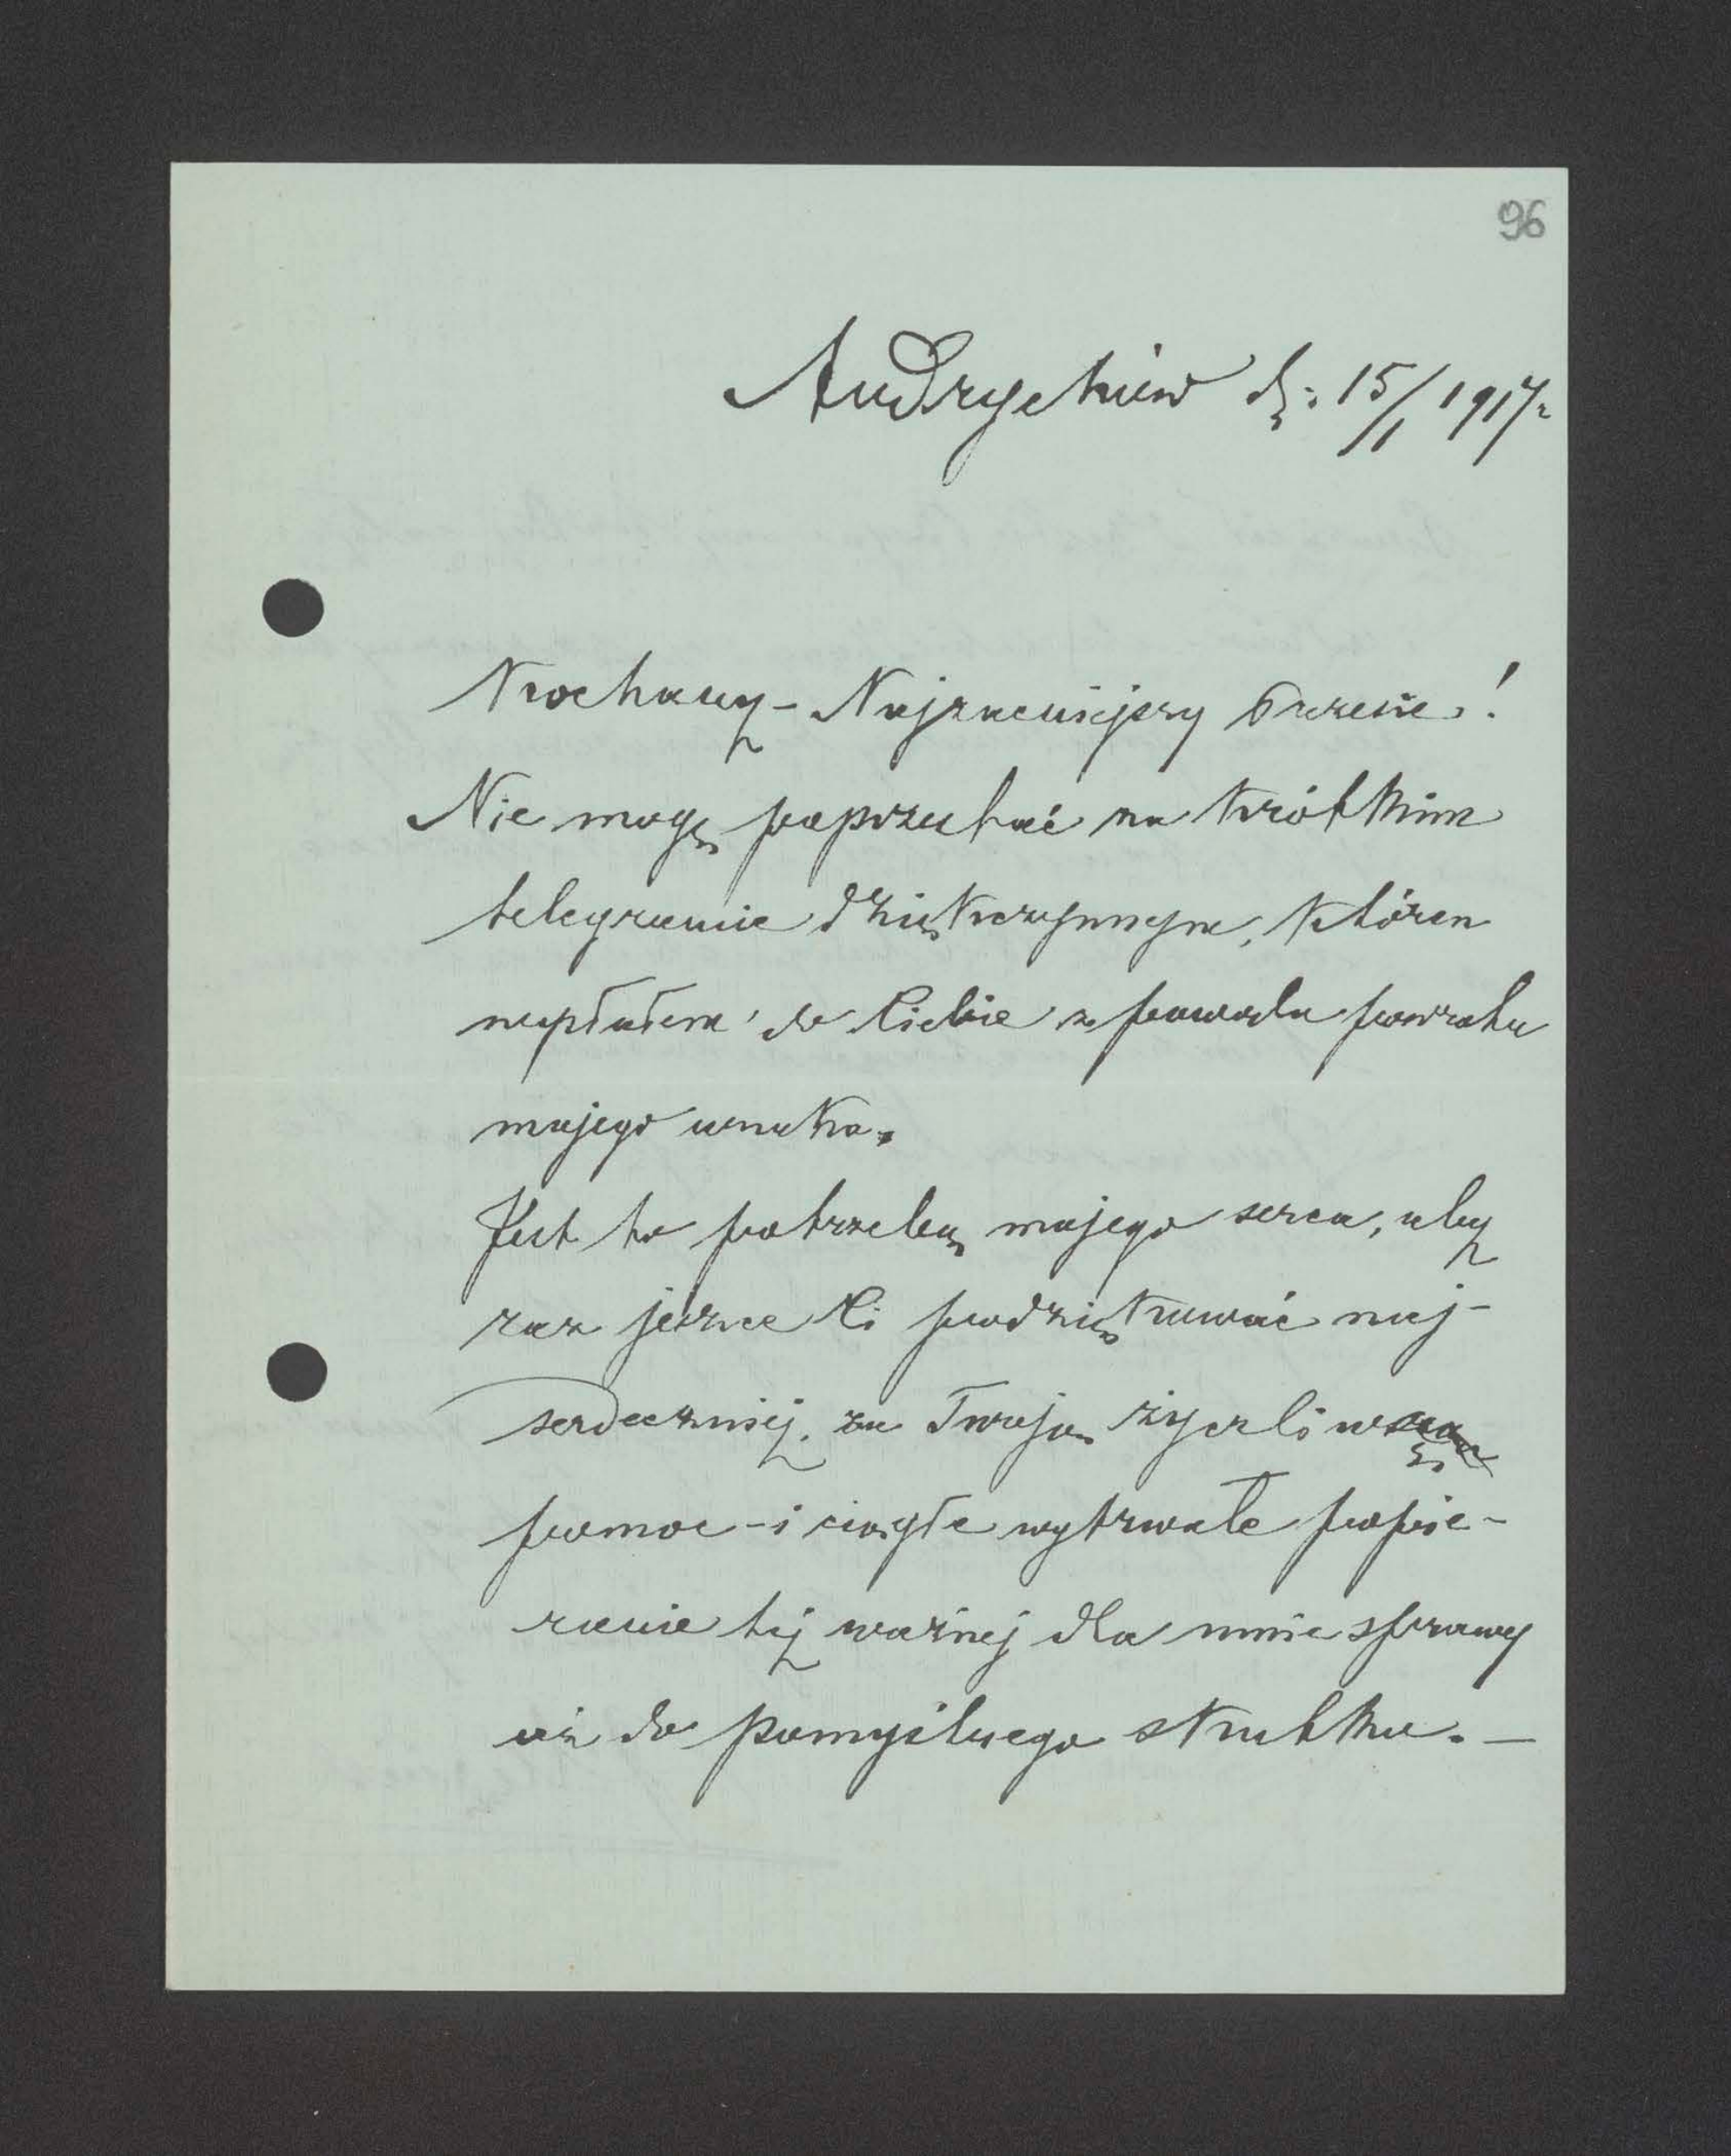 96
Andrychów d: 15/1 1917 r
Kochany - Najzacniejszy Grzesiu!
Nie mogę poprzestać na krótkim
telegramie dziękczynnym, któren
wysłałem do Ciebie z powodu powrotu
mojego wnuka.
Jest to potrzebą mojego serca, aby
raz jeszcze Ci podziękować naj-
serdeczniej, za Twoją życzliwą
pomoc - i ciągłe wytrwałe popie-
ranie tej ważnej dla mnie sprawy
aż do pomyślnego skutku. —